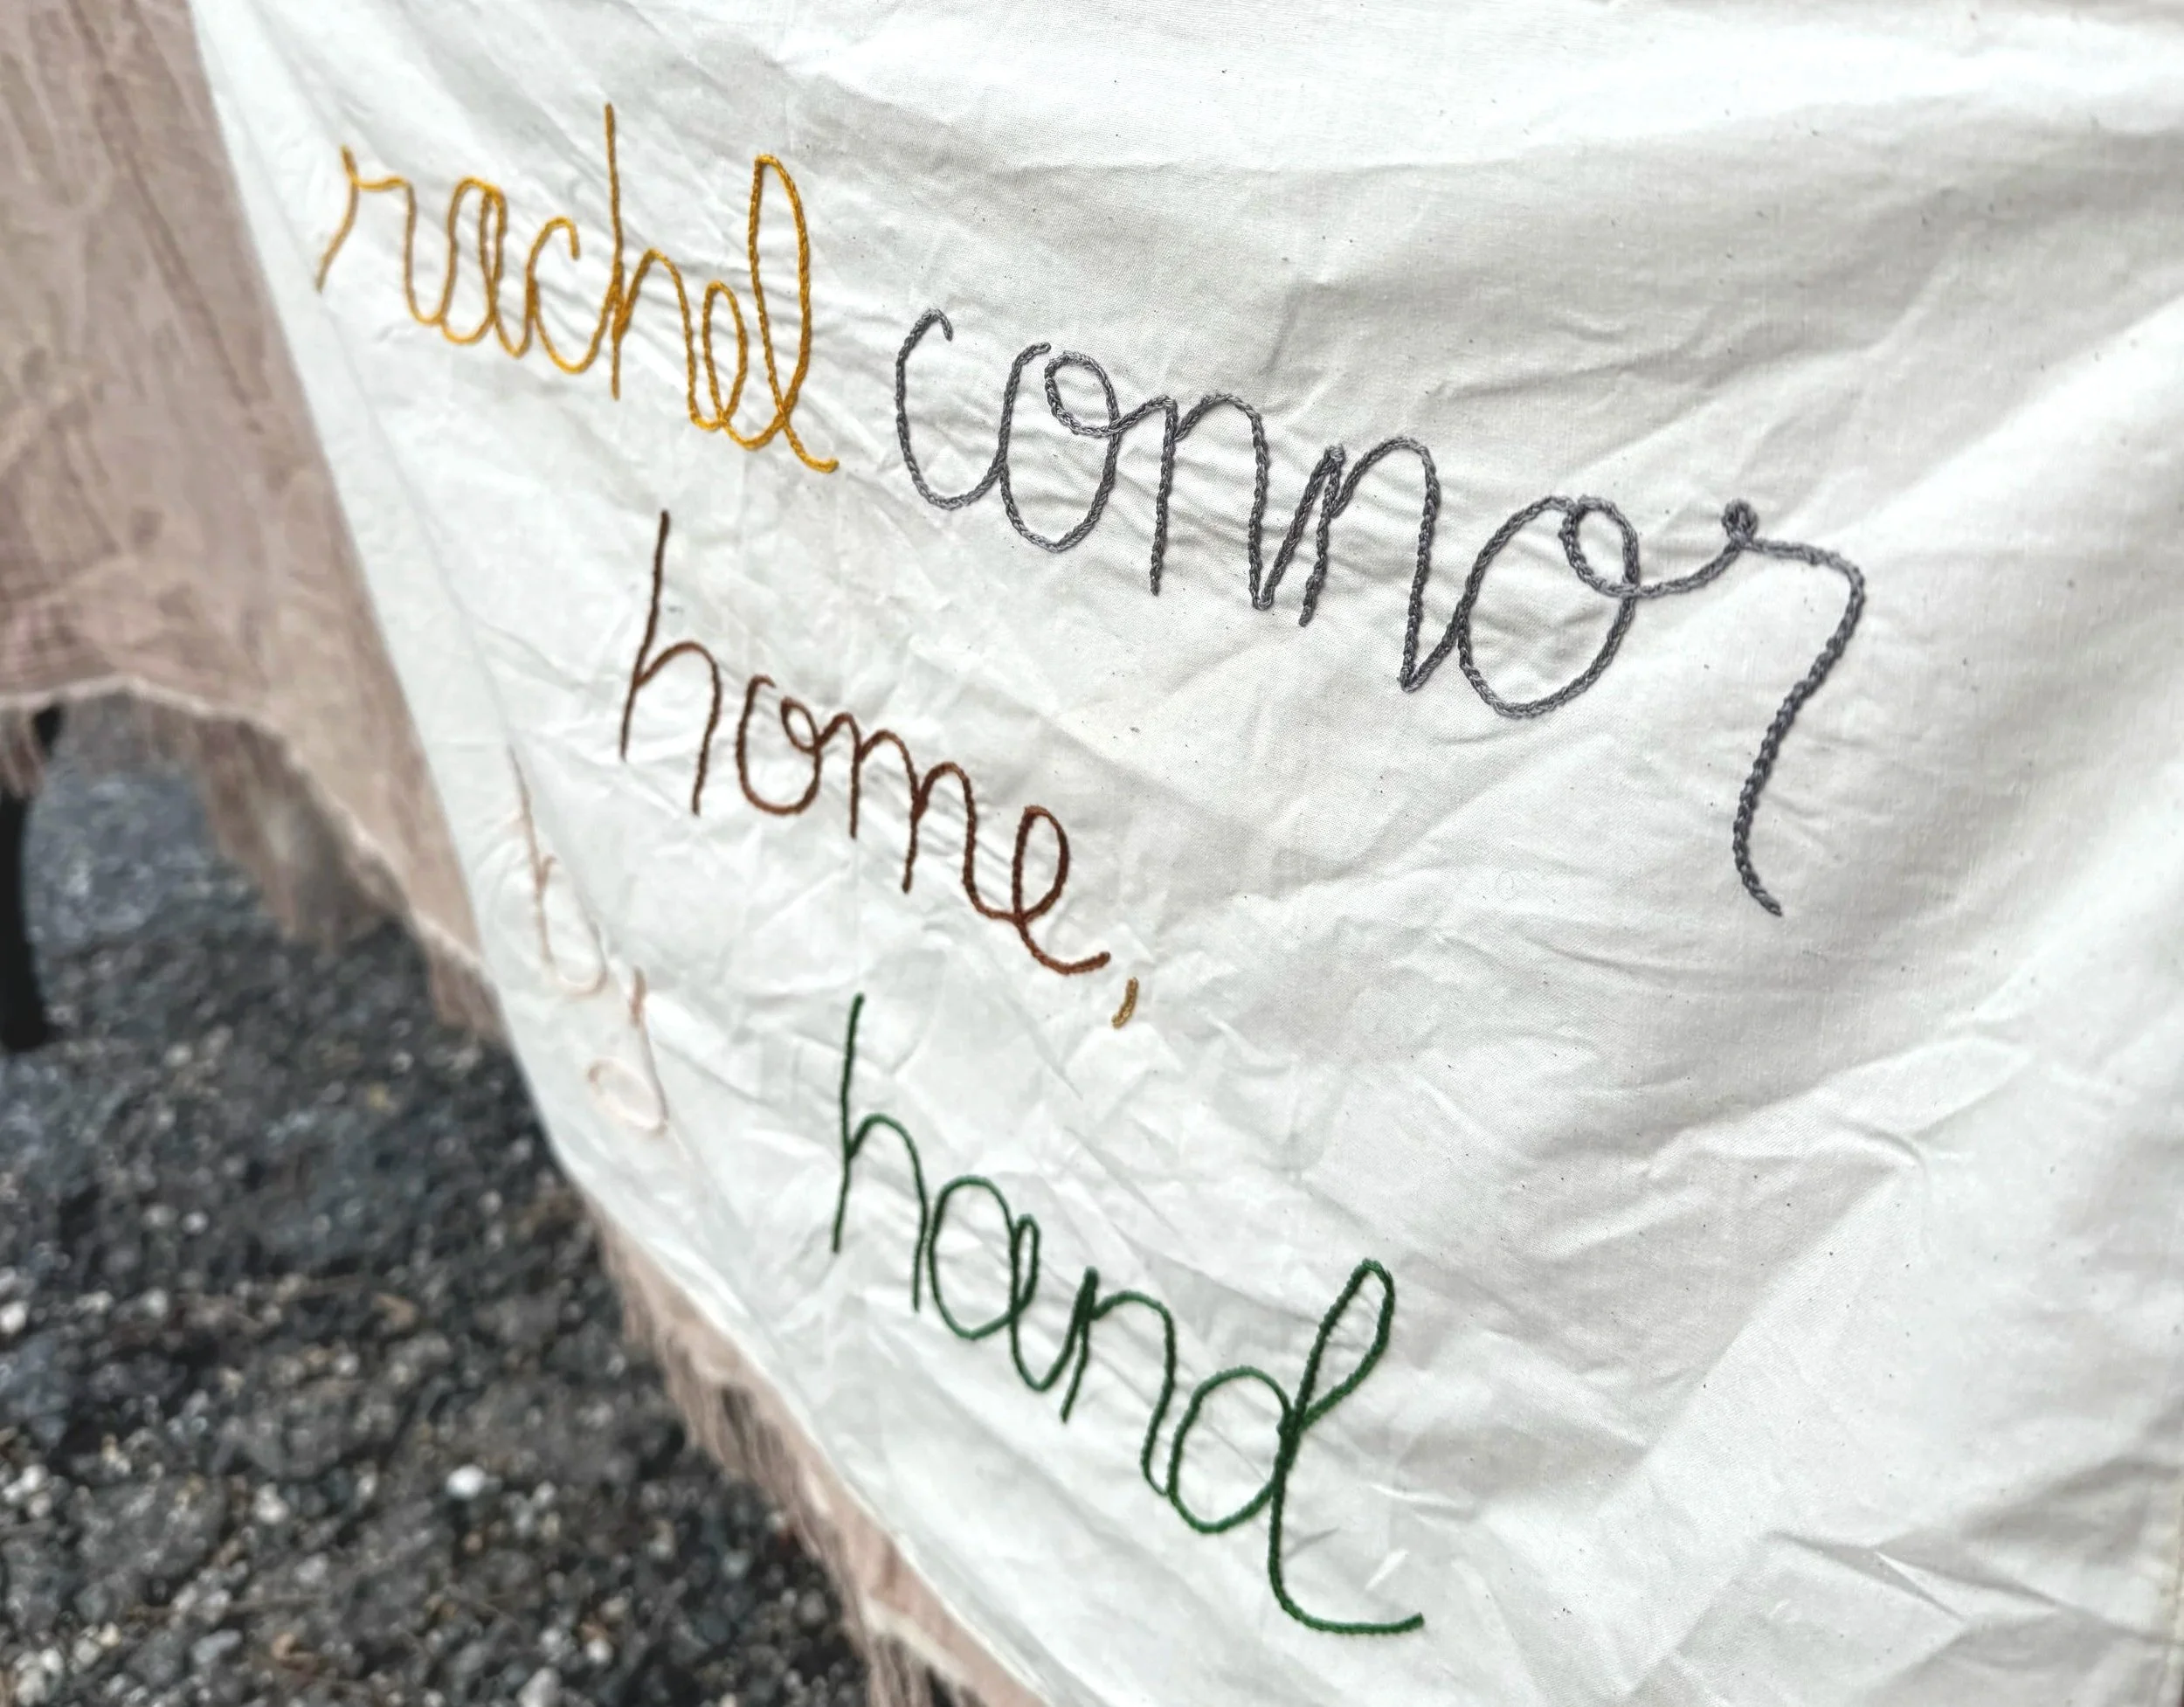 rachel connor
home,
hand